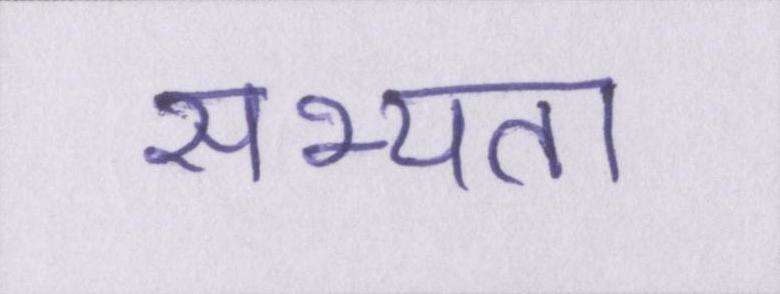 सभ्यता